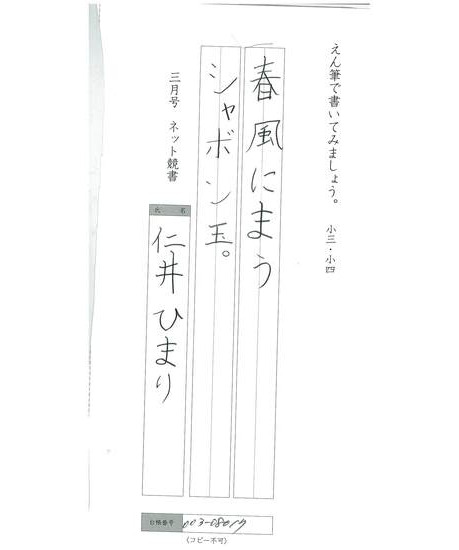 えん筆で書いてみましょう。 小三・小四
春風にまう
シャボン玉。
三月号 ネット競書
氏名
仁井ひまり
台帳番号
003-08019
(コピー不可)